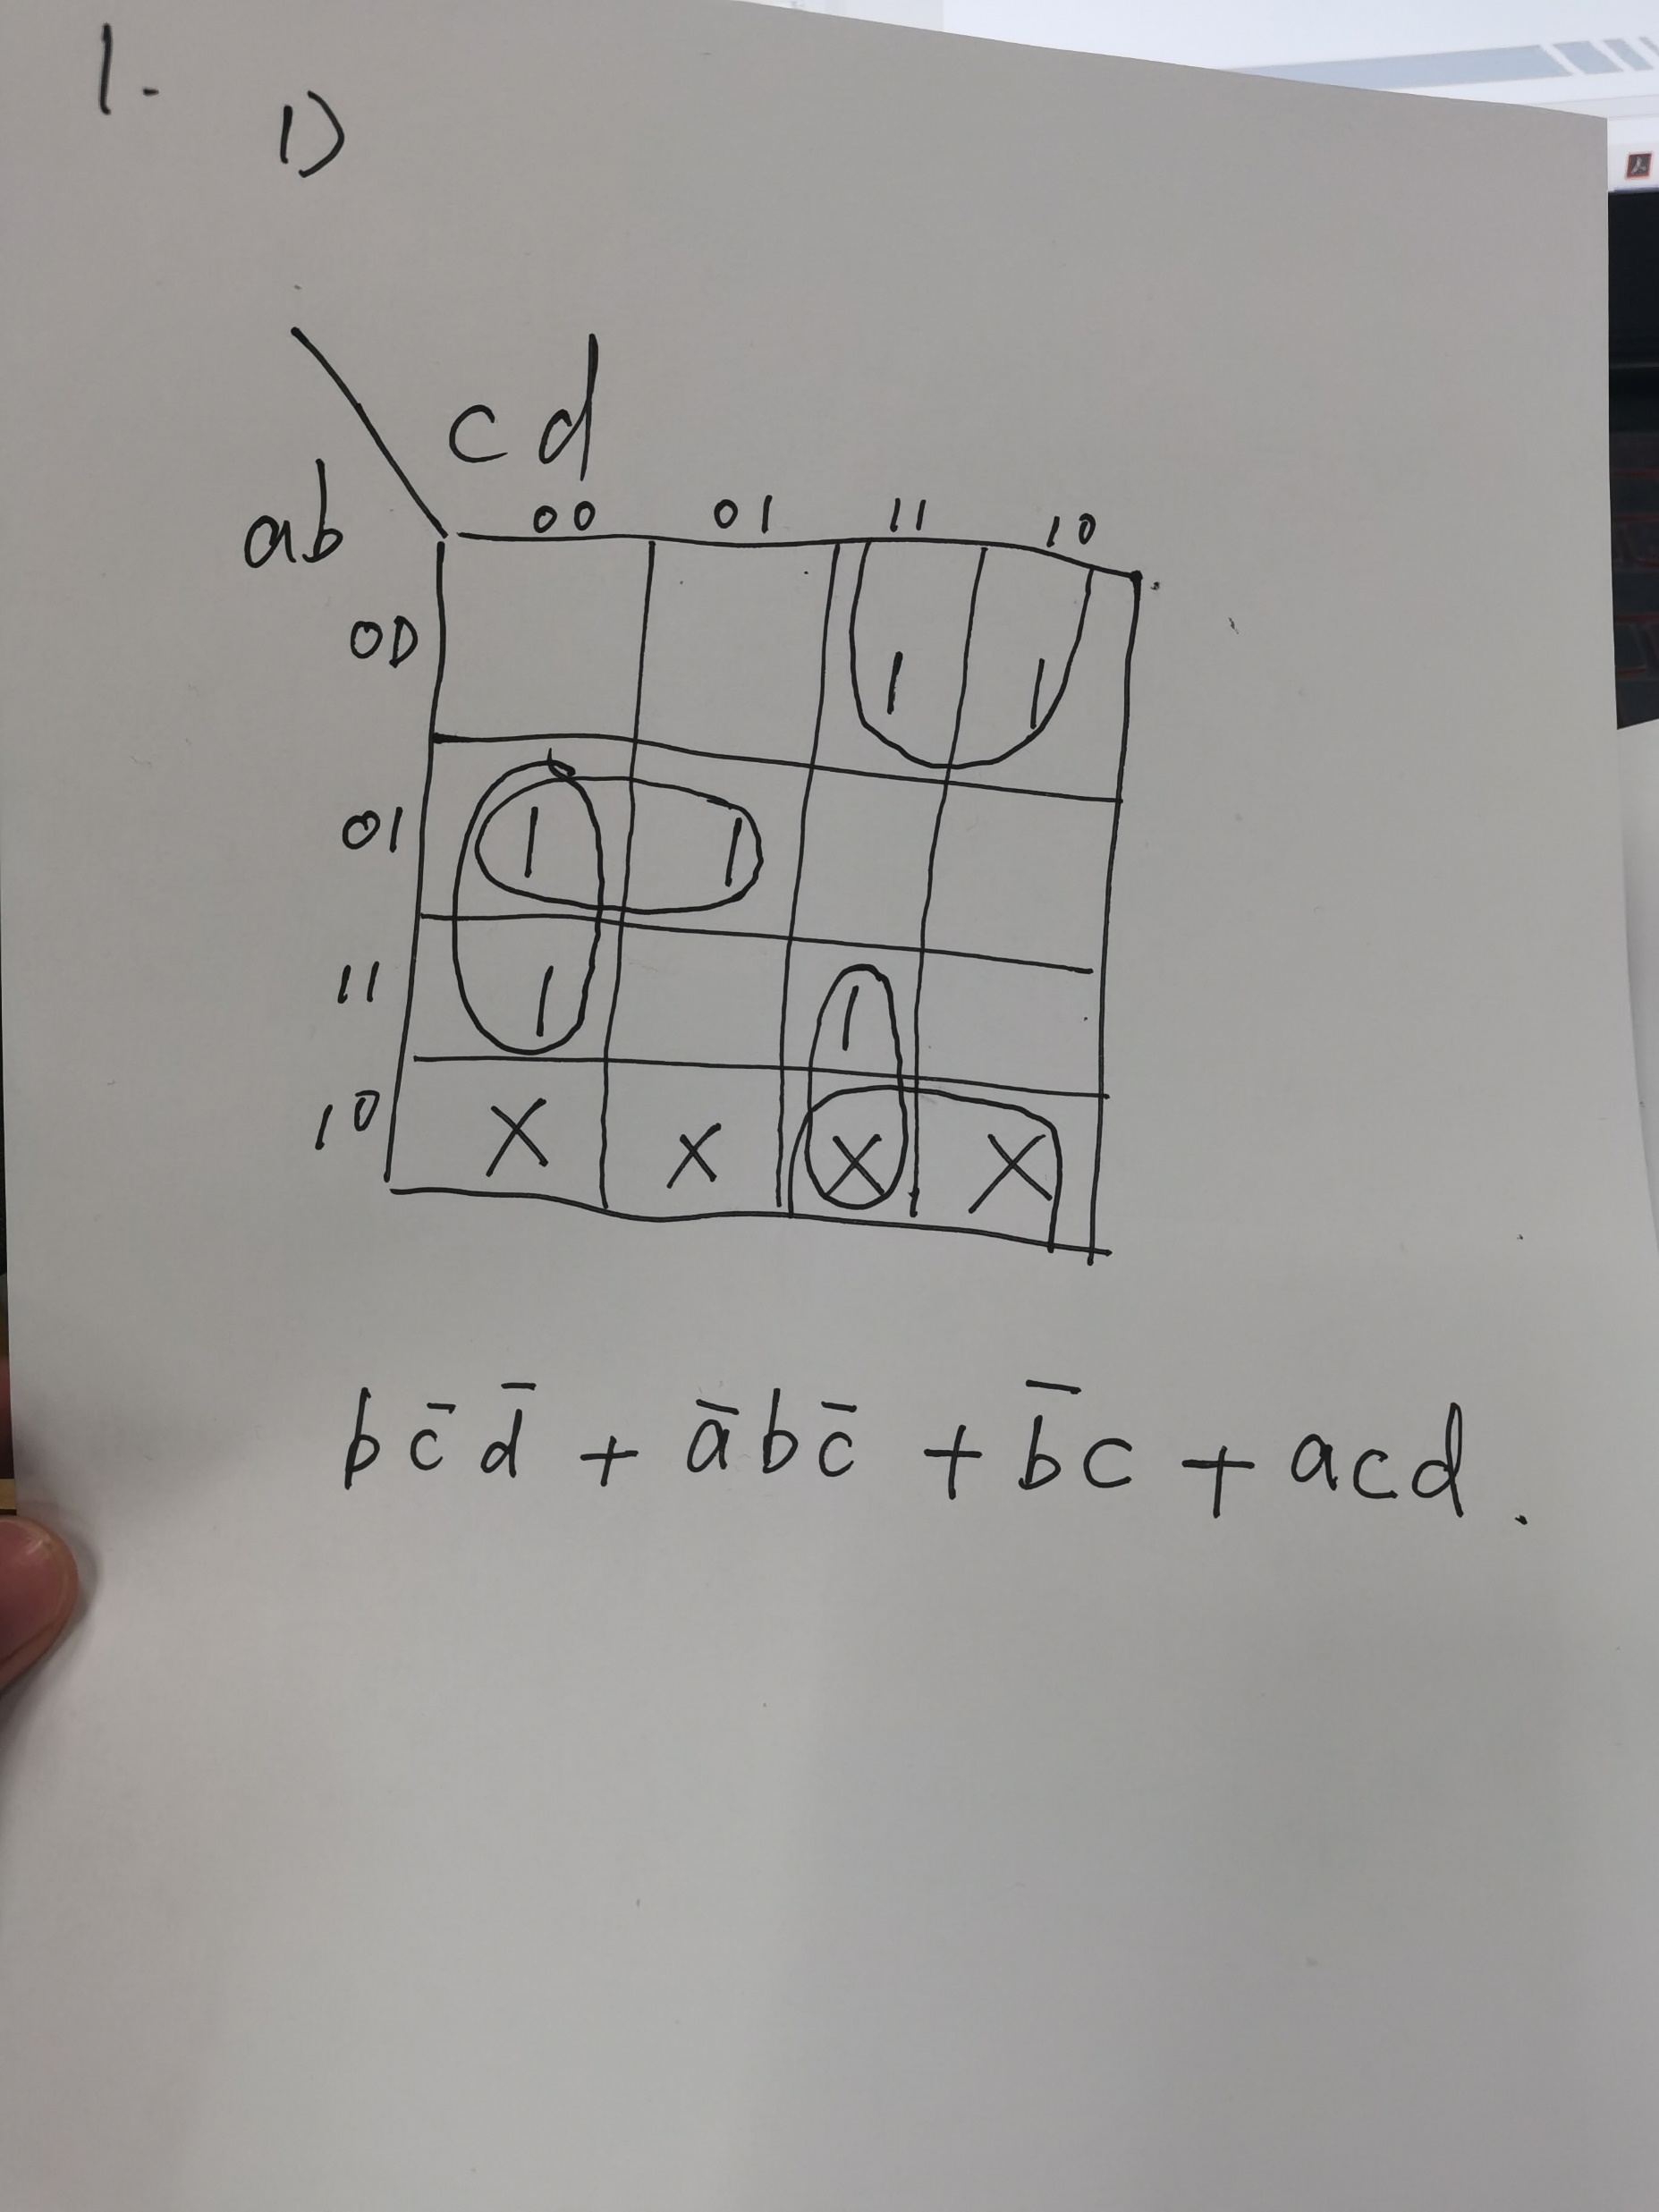 1.
1)
cd
ab
00 01 11 10
00 1 1
01 1 1
11 1 1
10 X X X X
b c̄ d̄ + ā b c̄ + b̄ c + a c d.